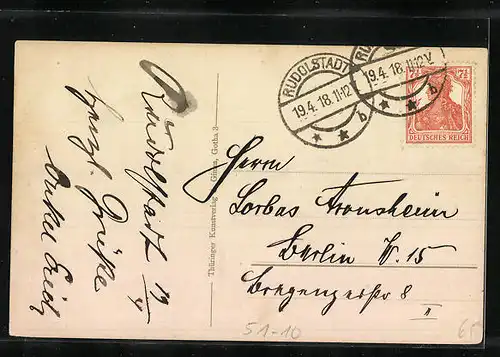 Rudolstadt 19/4
Herzl. Grüße
Onkel Erich
Thüringer Kunstverlag Gotha 3
RUDOLSTADT
19.4.18.11-12V.
* * b
RU
19.4.18.11-12V.
* * b
7½ 7½
DEUTSCHES REICH
Herrn
Aronsheim
Berlin W. 15
Bregenzerstr 8
II
51-10
65